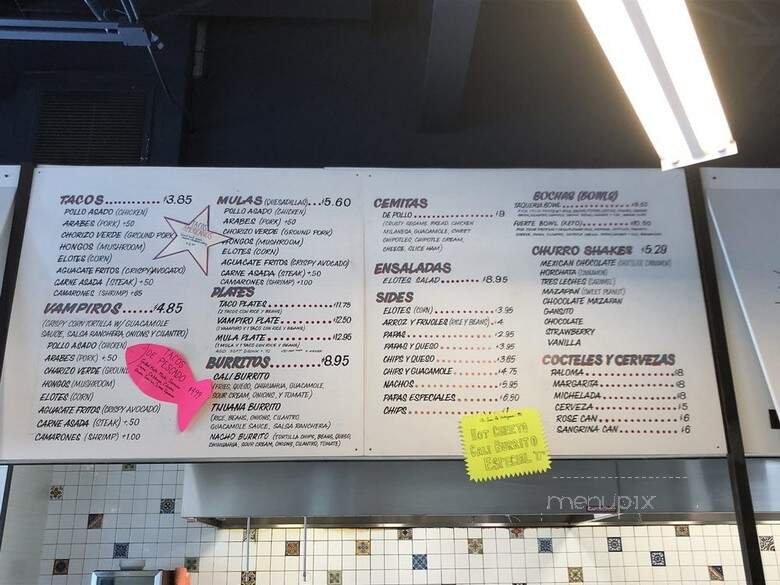 TACOS $3.85
POLLO ASADO (CHICKEN)
ARABES (PORK) +.50
CHORIZO VERDE (GROUND PORK)
HONGOS (MUSHROOM)
ELOTES (CORN)
AGUACATE FRITOS (CRISPY AVOCADO)
CARNE ASADA (STEAK) +.50
CAMARONES (SHRIMP) +85
VAMPIROS $4.85
(CRISPY CORN TORTILLA W/ GUACAMOLE
SAUCE, SALSA RANCHERA, ONIONS Y CILANTRO)
POLLO ASADO (CHICKEN)
ARABES (PORK) +.50
CHORIZO VERDE (GROUND
HONGOS (MUSHROOM)
ELOTES (CORN)
AGUACATE FRITOS (CRISPY AVOCADO)
CARNE ASADA (STEAK) +.50
CAMARONES (SHRIMP) +1.00
TACOS
DE PESCADO
$4.99
MULAS (QUESADILLAS) $5.60
POLLO ASADO (CHICKEN)
ARABES (PORK) +.50
CHORIZO VERDE (GROUND PORK)
HONGOS (MUSHROOM)
ELOTES (CORN)
AGUACATE FRITOS (CRISPY AVOCADO)
CARNE ASADA (STEAK) +.50
CAMARONES (SHRIMP) +1.00
PLATES
TACO PLATES 11.75
(2 TACOS CON RICE Y BEANS)
VAMPIRO PLATE 12.50
(1 VAMPIRO Y 1 TACO CON RICE Y BEANS)
MULA PLATE $12.95
(1 MULA Y 1 TACO CON RICE Y BEANS)
BURRITOS $8.95
CALI BURRITO
(FRIES, QUESO, CHIHUAHUA, GUACAMOLE,
SOUR CREAM, ONIONS, Y TOMATE)
TIJUANA BURRITO
(RICE, BEANS, ONIONS, CILANTRO,
GUACAMOLE SAUCE, SALSA RANCHERA)
NACHO BURRITO (TORTILLA CHIPS, BEANS, QUESO,
CHIHUAHUA, SOUR CREAM, ONIONS, CILANTRO, TOMATE)
CEMITAS
DE POLLO $9
(CRUSTY SESAME BREAD, CHICKEN
MILANESA, GUACAMOLE, SWEET
CHIPOTLES, CHIPOTLE CREAM,
CHEESE, SLICE HAM)
ENSALADAS
ELOTES SALAD $8.95
SIDES
ELOTES (CORN) $3.95
ARROZ Y FRIJOLES (RICE Y BEANS) $4
PAPAS $2.95
PAPAS Y QUESO $3.95
CHIPS Y QUESO $3.65
CHIPS Y GUACAMOLE $4.75
NACHOS $5.95
PAPAS ESPECIALES $6.50
CHIPS
HOT CHEETO
CALI BURRITO
ESPECIAL
BOCHAS (BOWLS)
TAQUERIA BOWL $9.50
FUERTE BOWL (KETO) $10.50
CHURRO SHAKES $5.29
MEXICAN CHOCOLATE (CHOCOLATE CINNAMON)
HORCHATA (CINNAMON)
TRES LECHES (CARAMEL)
MAZAPAN (SWEET PEANUT)
CHOCOLATE MAZAPAN
GANSITO
CHOCOLATE
STRAWBERRY
VANILLA
COCTELES Y CERVEZAS
PALOMA $8
MARGARITA $8
MICHELADA $8
CERVEZA $5
ROSE CAN $6
SANGRINA CAN $6
menupix